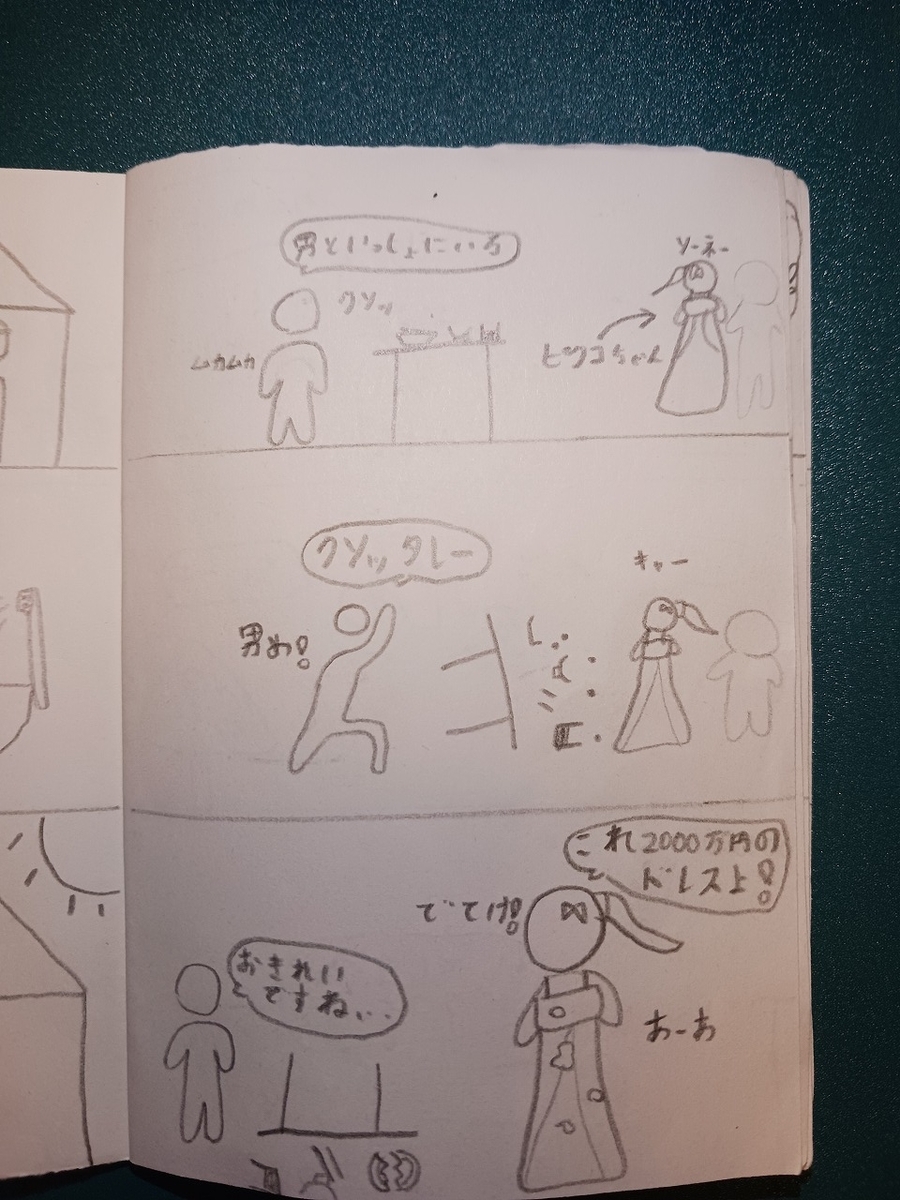 男といっしょにいる
ソーネー
クソッ
ムカムカ
クソッタレー
キャー
男め!
これ2000万円の
ドレスよ!
でてけ!
おきれい
ですね...
あーあ